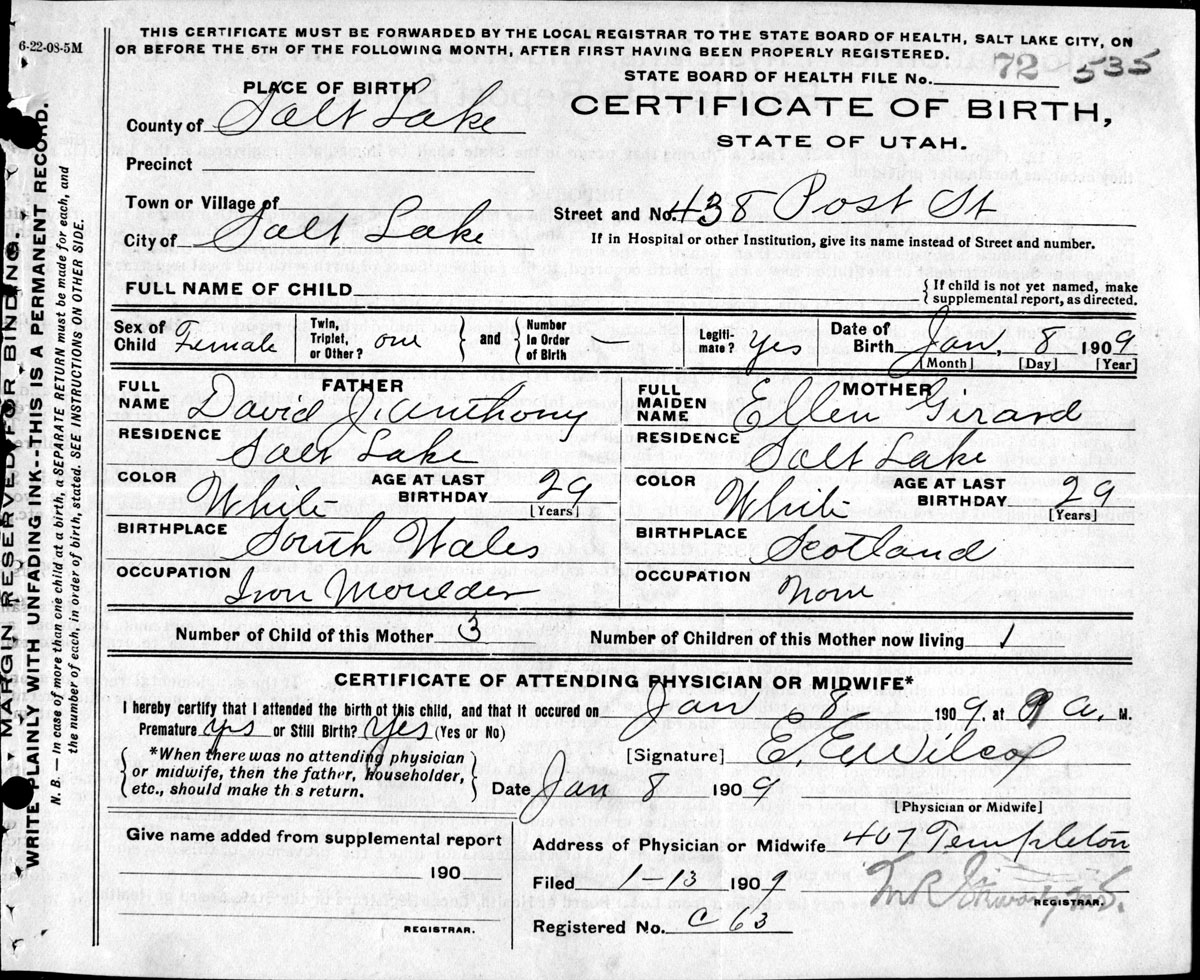 6-22-08-5M
THIS CERTIFICATE MUST BE FORWARDED BY THE LOCAL REGISTRAR TO THE STATE BOARD OF HEALTH, SALT LAKE CITY, ON
OR BEFORE THE 5TH OF THE FOLLOWING MONTH, AFTER FIRST HAVING BEEN PROPERLY REGISTERED.
STATE BOARD OF HEALTH FILE No. 72 535
CERTIFICATE OF BIRTH,
STATE OF UTAH.
PLACE OF BIRTH
County of Salt Lake
Precinct
Town or Village of
City of Salt Lake
Street and No. 438 Post St
If in Hospital or other Institution, give its name instead of Street and number.
FULL NAME OF CHILD
If child is not yet named, make
supplemental report, as directed.
Sex of Child Female
Twin, Triplet, or Other? one
and Number In Order of Birth —
Legitimate? yes
Date of Birth Jan, 8 1909
[Month] [Day] [Year]
FATHER
FULL NAME David J. Anthony
RESIDENCE Salt Lake
COLOR White AGE AT LAST BIRTHDAY 29 [Years]
BIRTHPLACE South Wales
OCCUPATION Iron Moulder
MOTHER
FULL MAIDEN NAME Ellen Girard
RESIDENCE Salt Lake
COLOR White AGE AT LAST BIRTHDAY 29 [Years]
BIRTHPLACE Scotland
OCCUPATION None
Number of Child of this Mother 3 Number of Children of this Mother now living 1
CERTIFICATE OF ATTENDING PHYSICIAN OR MIDWIFE*
I hereby certify that I attended the birth of this child, and that it occured on Jan 8 1909. at 9 a. M.
Premature yes or Still Birth? Yes (Yes or No)
[Signature] E. E. Wilcox
*When there was no attending physician
or midwife, then the father, householder,
etc., should make th s return.
Date Jan 8 1909
[Physician or Midwife]
Give name added from supplemental report
190
REGISTRAR.
Address of Physician or Midwife 407 Templeton
Filed 1-13 1909
REGISTRAR.
Registered No. C 63
MARGIN RESERVED FOR BINDING
WRITE PLAINLY WITH UNFADING INK--THIS IS A PERMANENT RECORD.
N. B. — In case of more than one child at a birth, a SEPARATE RETURN must be made for each, and
the number of each, in order of birth, stated. SEE INSTRUCTIONS ON OTHER SIDE.